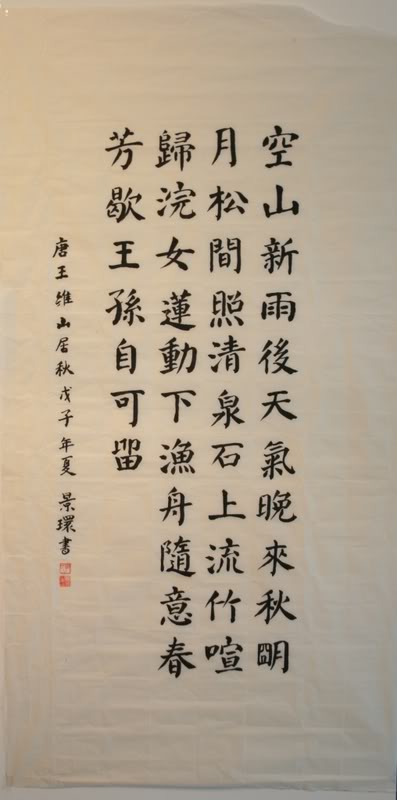 空山新雨後天氣晚來秋朙
月松間照清泉石上流竹喧
歸浣女蓮動下漁舟隨意春
芳歇王孫自可留
唐王維山居秋戊子年夏景環書